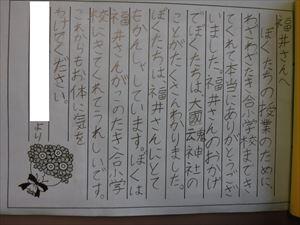 福井さんへ
ぼくたちの授業のために、
わざわざたき合小学校まできて
くれて本当にありがとうござ
いました。福井さんのおかげ
でぼくたちは大國魂神社の
ことがたくさんわかりました。
ぼくたちは、福井さんにとて
もかんしゃしています。ぼくは
福井さんが、このたき合小学
校にきてくれてうれしいです。
これからもお体に気を
つけてください。
より